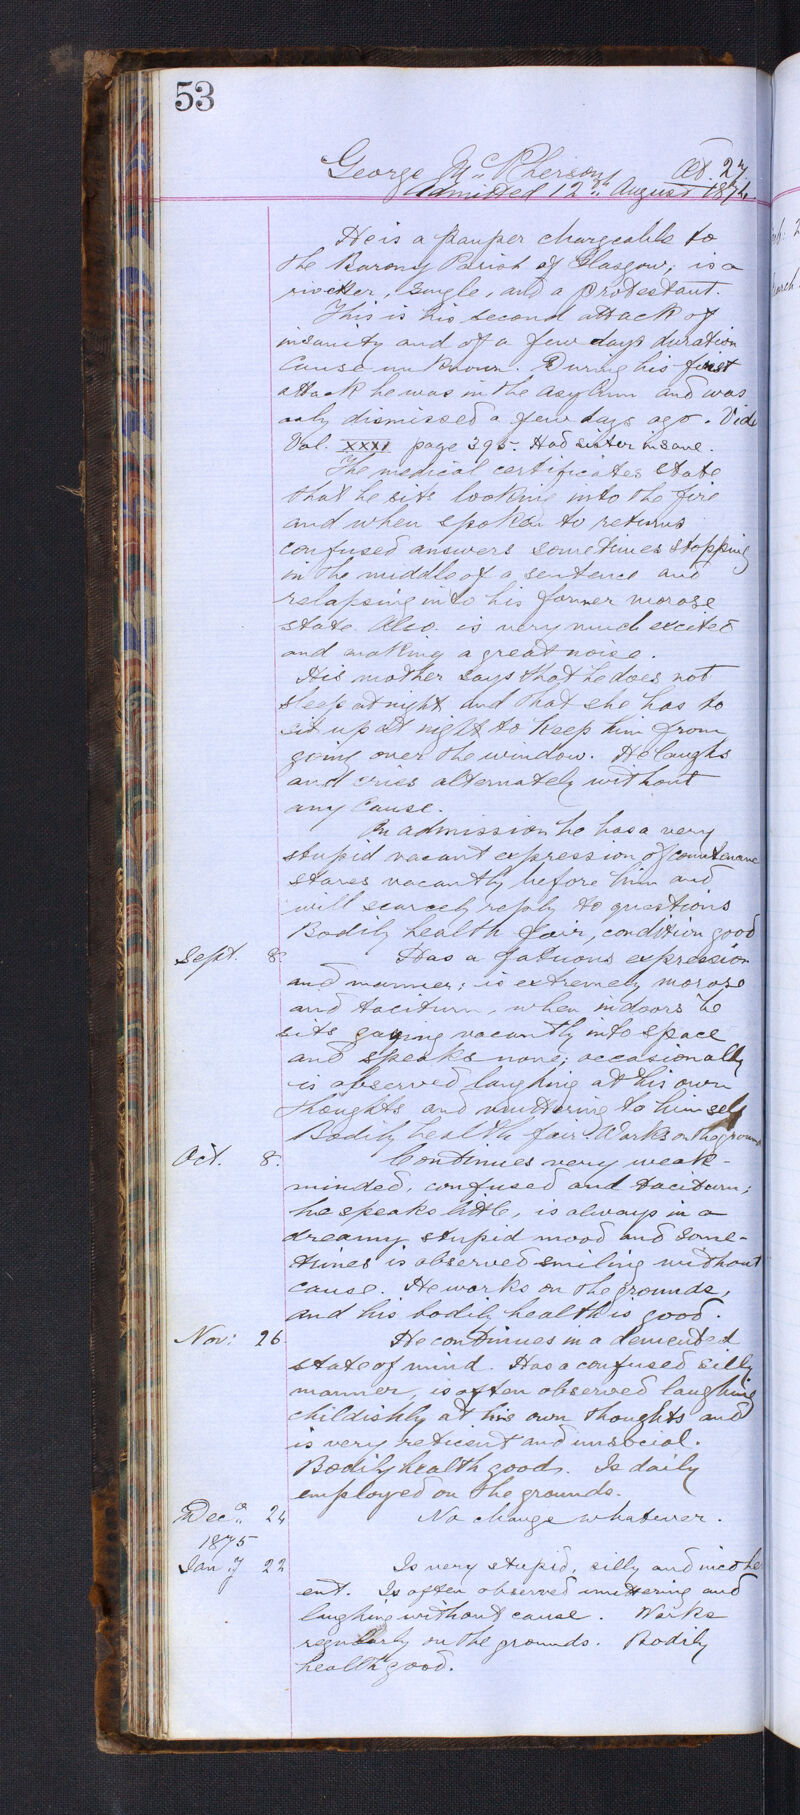 53
George McPherson Aet. 27.
Admitted 12th August 1874.
He is a pauper chargeable to
the Barony Parish of Glasgow; is a
rivetter, single, and a Protestant.
This is his second attack of
insanity and of a few days duration
Cause unknown. During his first
attack he was in the Asylum and was
only dismissed a few days ago. Vide
Vol. XXXI page 395. Had sister insane.
The medical certificates state
that he sits looking into the fire
and when spoken to returns
confused answers sometimes stopping
in the middle of a sentence and
relapsing into his former morose
state. Also is very much excited
and making a great noise.
His mother says that he does not
sleep at night and that she has to
sit up at night to keep him from
going over the window. He laughs
and cries alternately without
any cause.
On admission he has a very
stupid vacant expression of countenance
stares vacantly before him and
will scarcely reply to questions
Bodily health fair, condition good
Sept. 8. Has a fatuous expression
and manner; is extremely morose
and taciturn, when indoors he
sits gazing vacantly into space
and speaks none; occasionally
is observed laughing at his own
thoughts and muttering to himself
Bodily health fair. Works on the grounds
Oct. 8. Continues very weak-
minded, confused and taciturn;
he speaks little, is always in a
dreamy stupid mood and some-
times is observed smiling without
cause. He works on the grounds,
and his bodily health is good.
Nov: 26. He continues in a demented
state of mind. Has a confused silly
manner, is often observed laughing
childishly at his own thoughts and
is very reticent and unsocial.
Bodily health good. Is daily
employed on the grounds.
Decr. 24 No change whatever.
1875
Jany 22 Is very stupid, silly and incoher
ent. Is often observed muttering and
laughing without cause. Works
regularly on the grounds. Bodily
health good.